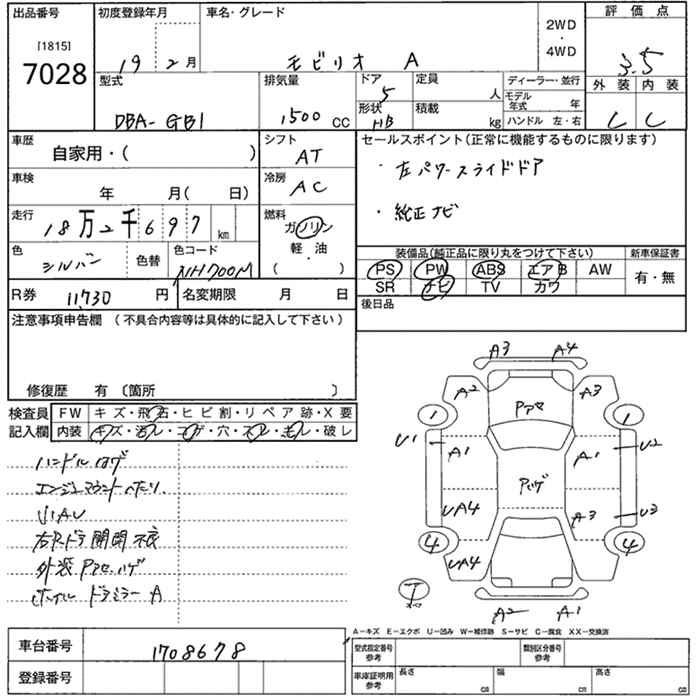 出品番号
[1815]
7028
初度登録年月
19 年 2 月
車名・グレード
モビリオ A
2WD
・
4WD
評価点
3.5
外装 内装
C C
型式
DBA- GB1
排気量
1500 CC
ドア
5
形状
HB
定員
人
積載
kg
ディーラー・並行
モデル年式 年
ハンドル 左・右
車歴
自家用・( )
シフト
AT
車検
年 月( 日)
冷房
AC
走行
18万2千697 km
燃料
ガソリン
軽・油
・
( )
色
シルバー
色替
色コード
NH700M
R券 11,730 円
名変期限 月 日
セールスポイント(正常に機能するものに限ります)
・左パワースライドドア
・純正ナビ
装備品(純正品に限り丸をつけて下さい)
新車保証書
PS PW ABS エアB AW
SR ナビ TV カワ
有・無
後日品
注意事項申告欄 (不具合内容等は具体的に記入して下さい)
修復歴 有〔箇所 〕
検査員
記入欄
FW キズ・飛石・ヒビ割・リペア跡・X要
内装 キズ・汚レ・コゲ・穴・スレ・毛レ・破レ
ハンドルハゲ
エンジンマウントへたり
右Rドア開閉不良
外装Pアセ、ハゲ
ホイル ドアミラーA
A3 A4
A2 A3
Pアセ
1 1
U1 U2
A1 A1
Pハゲ
UA4 A3 U3
4 4
UA4
A2 A1
A－キズ E－エクボ U－凹み W－補修跡 S－サビ C－腐食 XX－交換済
車台番号
1708678
登録番号
型式指定番号
参考
類別区分番号
参考
車庫証明用
参考
長さ cm
幅 cm
高さ cm